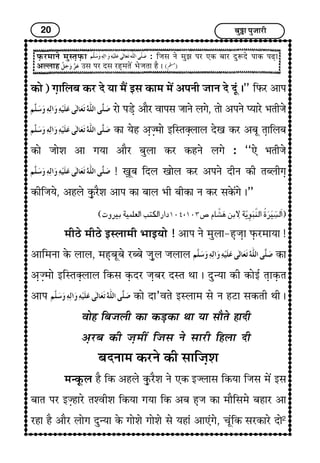 20 बुड्ढा पुजारी
फ़रमाने मुस्तफ़ा صَلَّى اللهُ تَعَالٰى عَلَيْهِ وَاٰلِهٖ وَسَلَّم : जिस ने मुझ पर एक बार दुरूदे पाक पढ़ा
अल्लाह عَزَّوَجَلَّ उस पर दस रहमतें भेजता है । (مسلم)
को ) ग़ालिब कर दे या मैं इस काम में अपनी जान दे दूं ।” फिर आप
صَلَّى اللهُ تَعَالٰى عَلَيْهِ وَاٰلِهٖ وَسَلَّم रो पड़े और वापस जाने लगे, तो अपने प्यारे भतीजे
صَلَّى اللهُ تَعَالٰى عَلَيْهِ وَاٰلِهٖ وَسَلَّم का येह अ़ज़्मो इस्तिक़्लाल देख कर अबू त़ालिब
को जोश आ गया और बुला कर कहने लगे : “ऐ भतीजे
صَلَّى اللهُ تَعَالٰى عَلَيْهِ وَاٰلِهٖ وَسَلَّم ! खूब दिल खोल कर अपने दीन की तब्लीग़
कीजिये, अहले कु़रैश आप का बाल भी बीका न कर सकेंगे ।”
(اَلسِّيْرَةُ النَّبَوِيَّة لابن هَشَّام ص١٠٣،١٠٤دارالكتب العلمية بيروت)
मीठे मीठे इस्लामी भाइयो ! आप ने मुला-ह़ज़ा फ़रमाया !
आमिना के लाल, महबूबे रब्बे जुल जलाल صَلَّى اللهُ تَعَالٰى عَلَيْهِ وَاٰلِهٖ وَسَلَّم का
अ़ज़्मो इस्तिक़्लाल किस क़दर ज़बर दस्त था । दुन्या की कोई त़ाक़त
आप صَلَّى اللهُ تَعَالٰى عَلَيْهِ وَاٰلِهٖ وَسَلَّم को दा'वते इस्लाम से न हटा सकती थी ।
वोह बिजली का कड़का था या सौते हादी
अ़रब की ज़मीं जिस ने सारी हिला दी
बदनाम करने की साजि़श
मन्कू़ल है कि अहले कु़रैश ने एक इज्लास किया जिस में इस
बात पर इज़्हारे तश्वीश किया गया कि अब ह़ज का मौसिमे बहार आ
रहा है और लोग दुन्या के गोशे गोशे से यहां आएंगे, चूंकि सरकारे दो